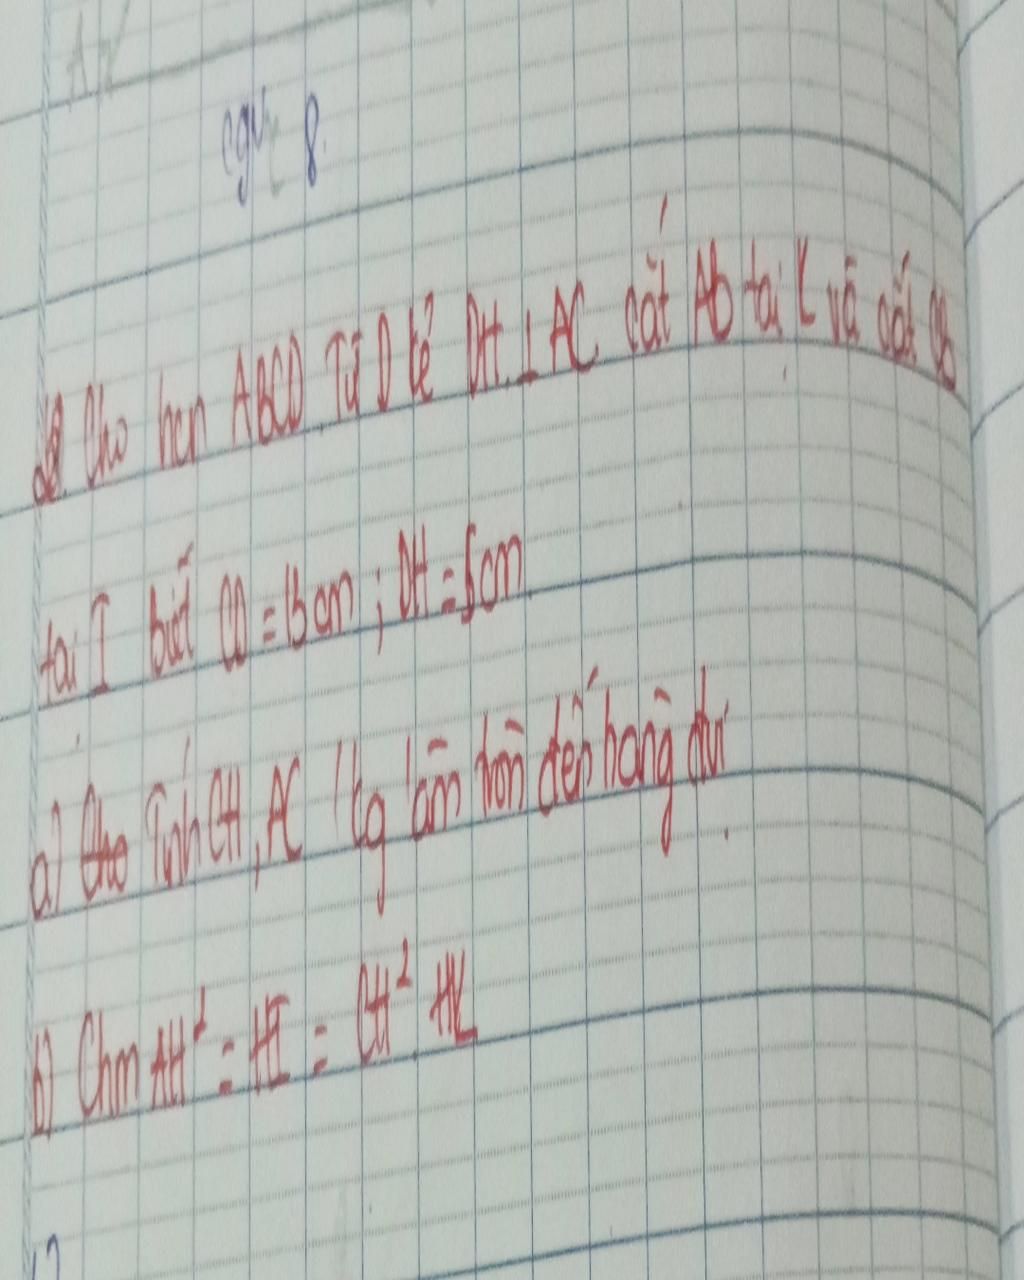 8.
Cho hcn ABCD. Từ D kẻ DH ⊥ AC cắt AB tại K và cắt CB
tại I biết CD = 13 cm ; DH = 5cm
a) Cho Tính CH, AC làm tròn đến hàng đvị
b) Chm AH² = HI = CH² HK